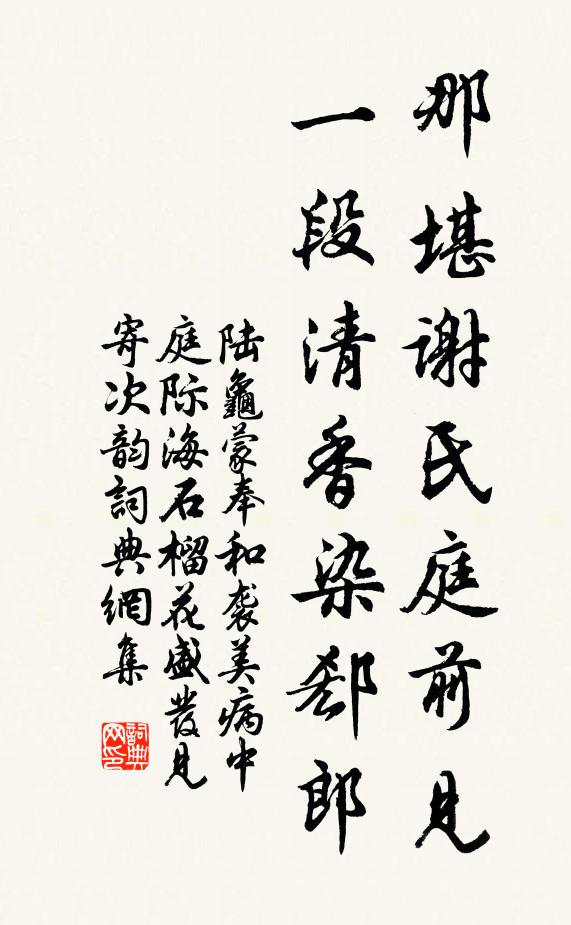 那堪謝氏庭前見
一段清香染郄郎
陆龜蒙奉和袭美病中
庭际海石榴花盛發見
寄次韵詞典網集
詞典
网印